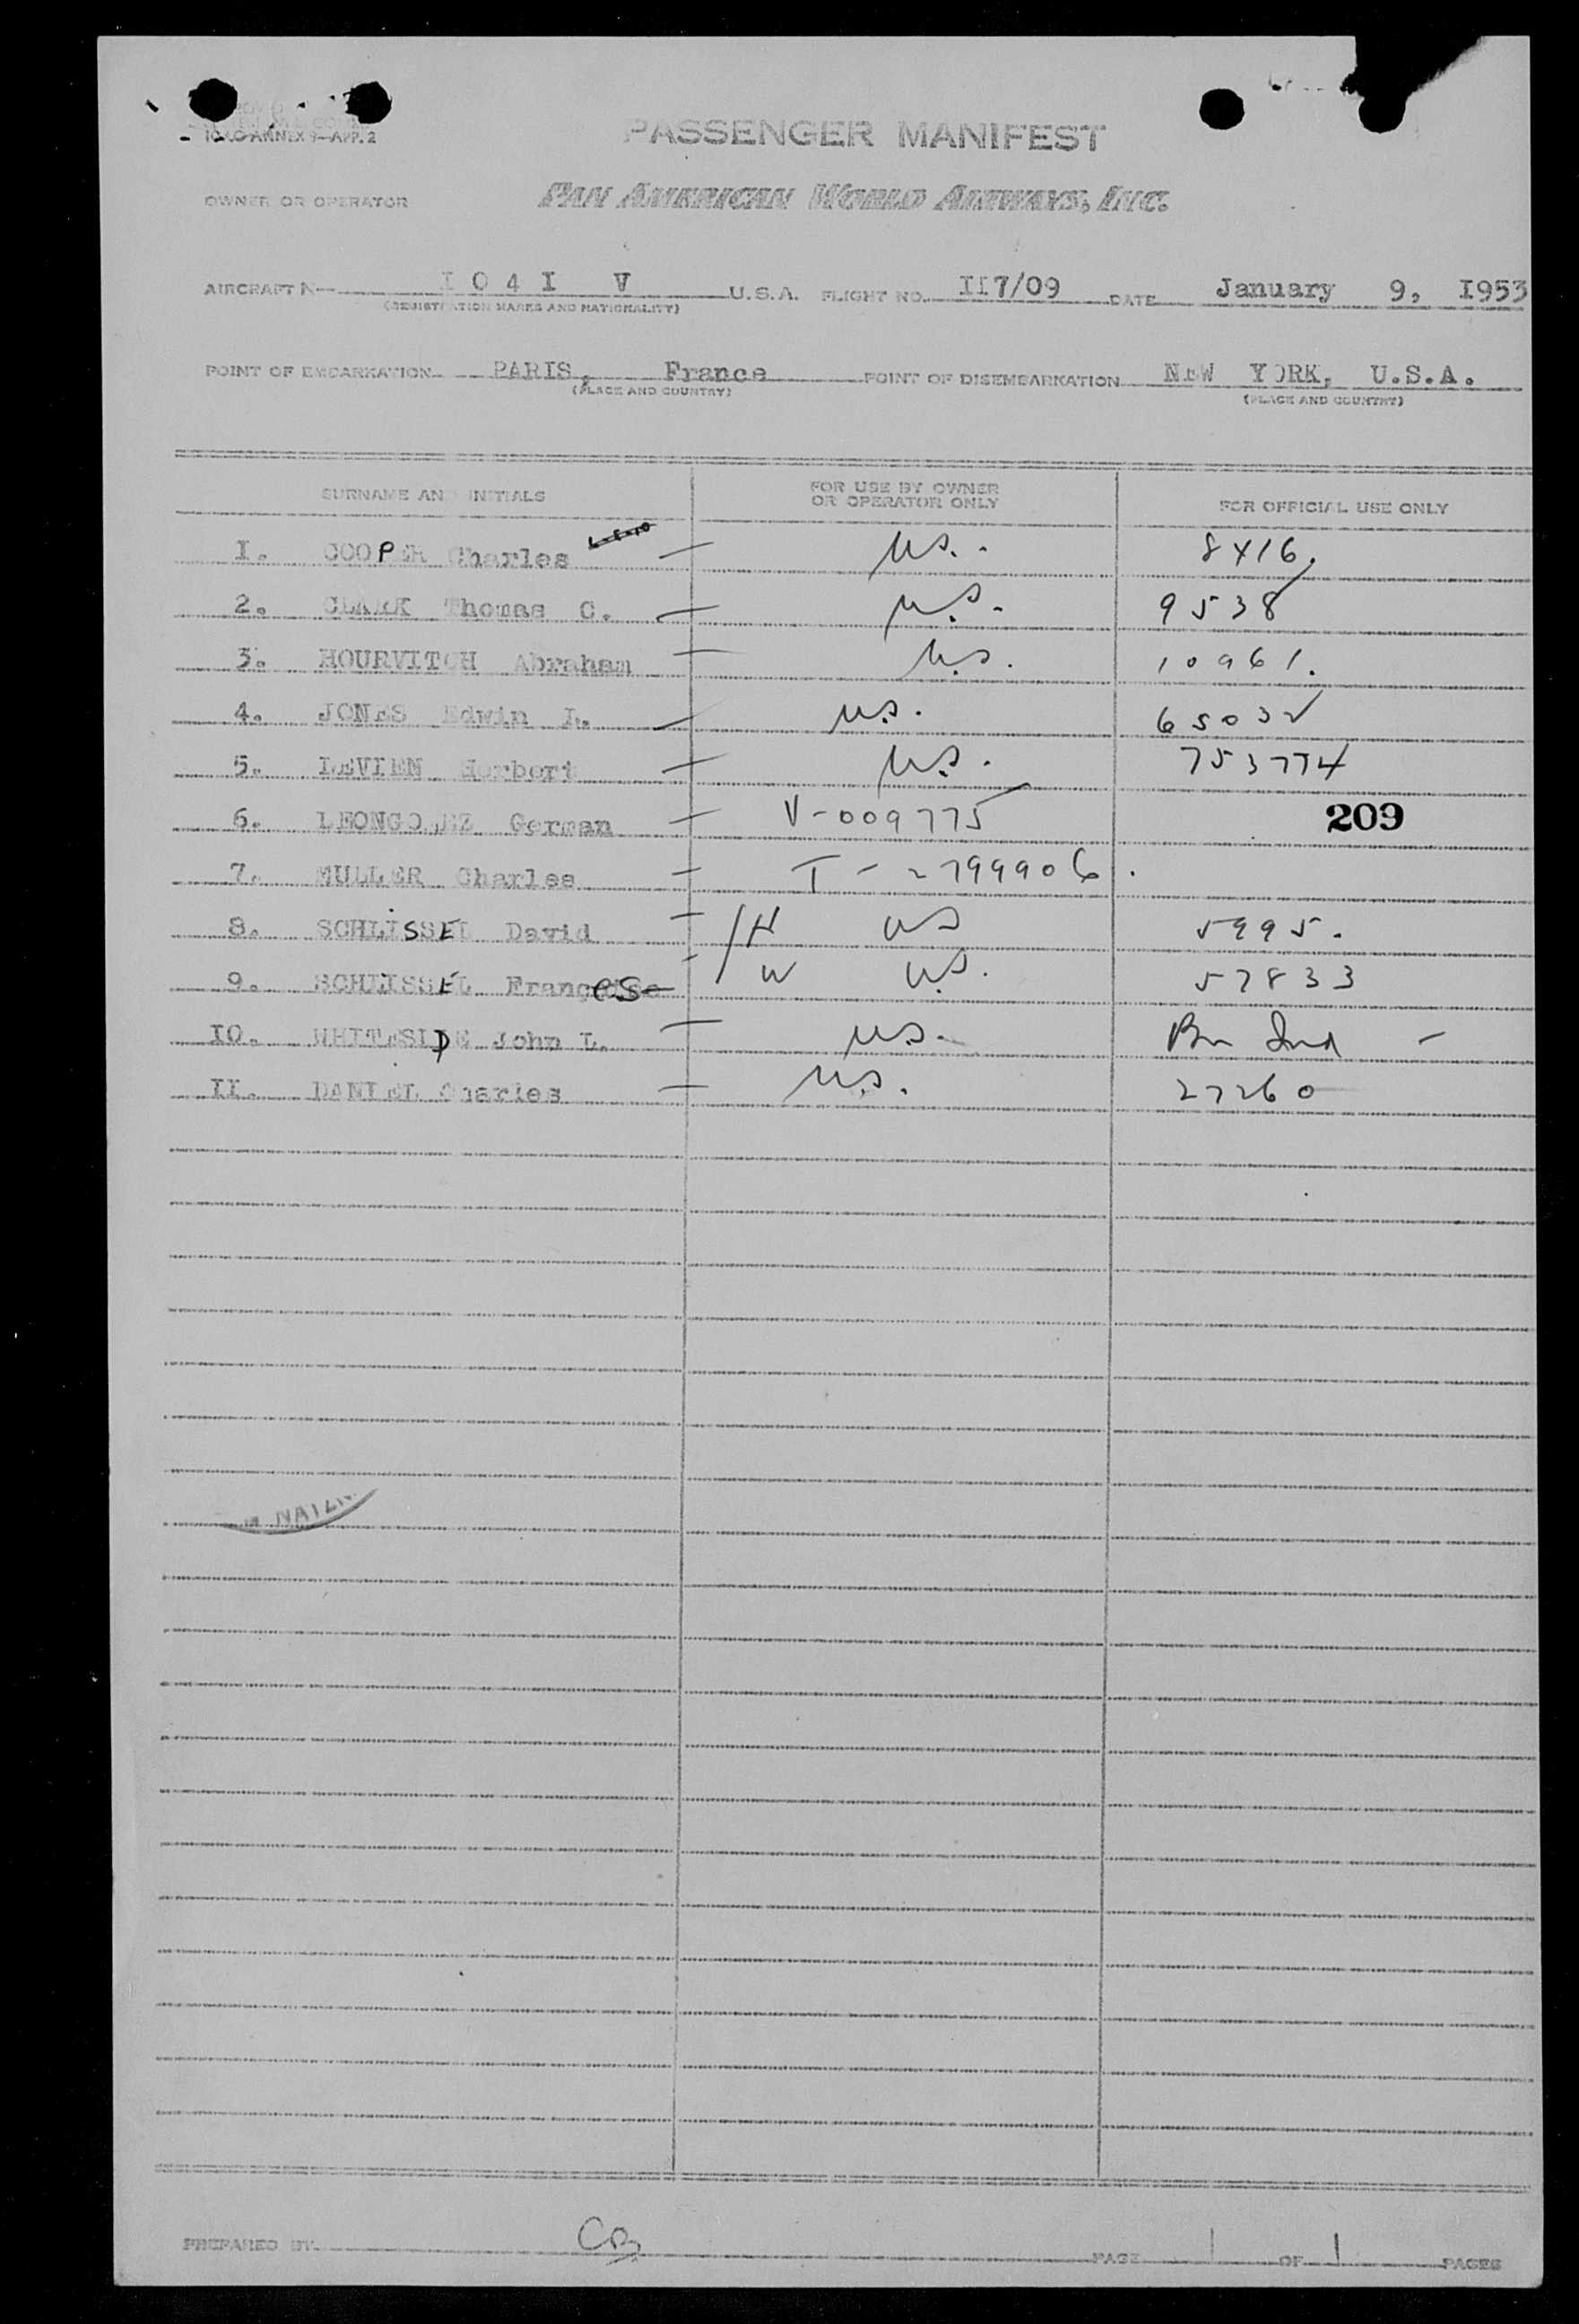 ICAO ANNEX 9—APP. 2
PASSENGER MANIFEST
OWNER OR OPERATOR PAN AMERICAN WORLD AIRWAYS, INC.
AIRCRAFT N— I O 4 I V U.S.A. FLIGHT NO. II7/09 DATE January 9, I953
(REGISTRATION MARKS AND NATIONALITY)
POINT OF EMBARKATION PARIS, France POINT OF DISEMBARKATION NEW YORK, U.S.A.
(PLACE AND COUNTRY) (PLACE AND COUNTRY)
SURNAME AND INITIALS FOR USE BY OWNER OR OPERATOR ONLY FOR OFFICIAL USE ONLY
I. COOPER Charles — U.S. 8416.
2. CLARK Thomas C. — U.S. 9538
3. HOURVITCH Abraham — U.S. 10961.
4. JONES Edwin L. — U.S.
5. LEVIEN Herbert — U.S. 753774
6. — V-009775 209
7. MULLER Charles — T-2799906
8. SCHLISSEL David — H US 5995.
9. SCHLISSEL Frances W U.S. 57833
IO. WHITESIDE John L. — U.S.
II. DANIEL Charles — U.S. 27260
PREPARED BY CB PAGE 1 OF 1 PAGES